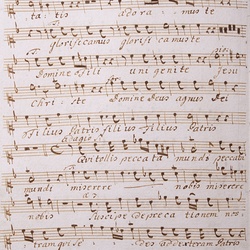 ta: tis adora: mus te
glorificamus glorifi camuste
Domine Fili uni genite Jesu
Chri: ste Domine Deus agnus Dei
Filius Patris Filius Patris
Adagio
Qui tollis peccata mundi peccata
mundi miserere nobis miserere
nobis Suscipe depreca tionem nos:
tram qui se: des ad dexteram Patris